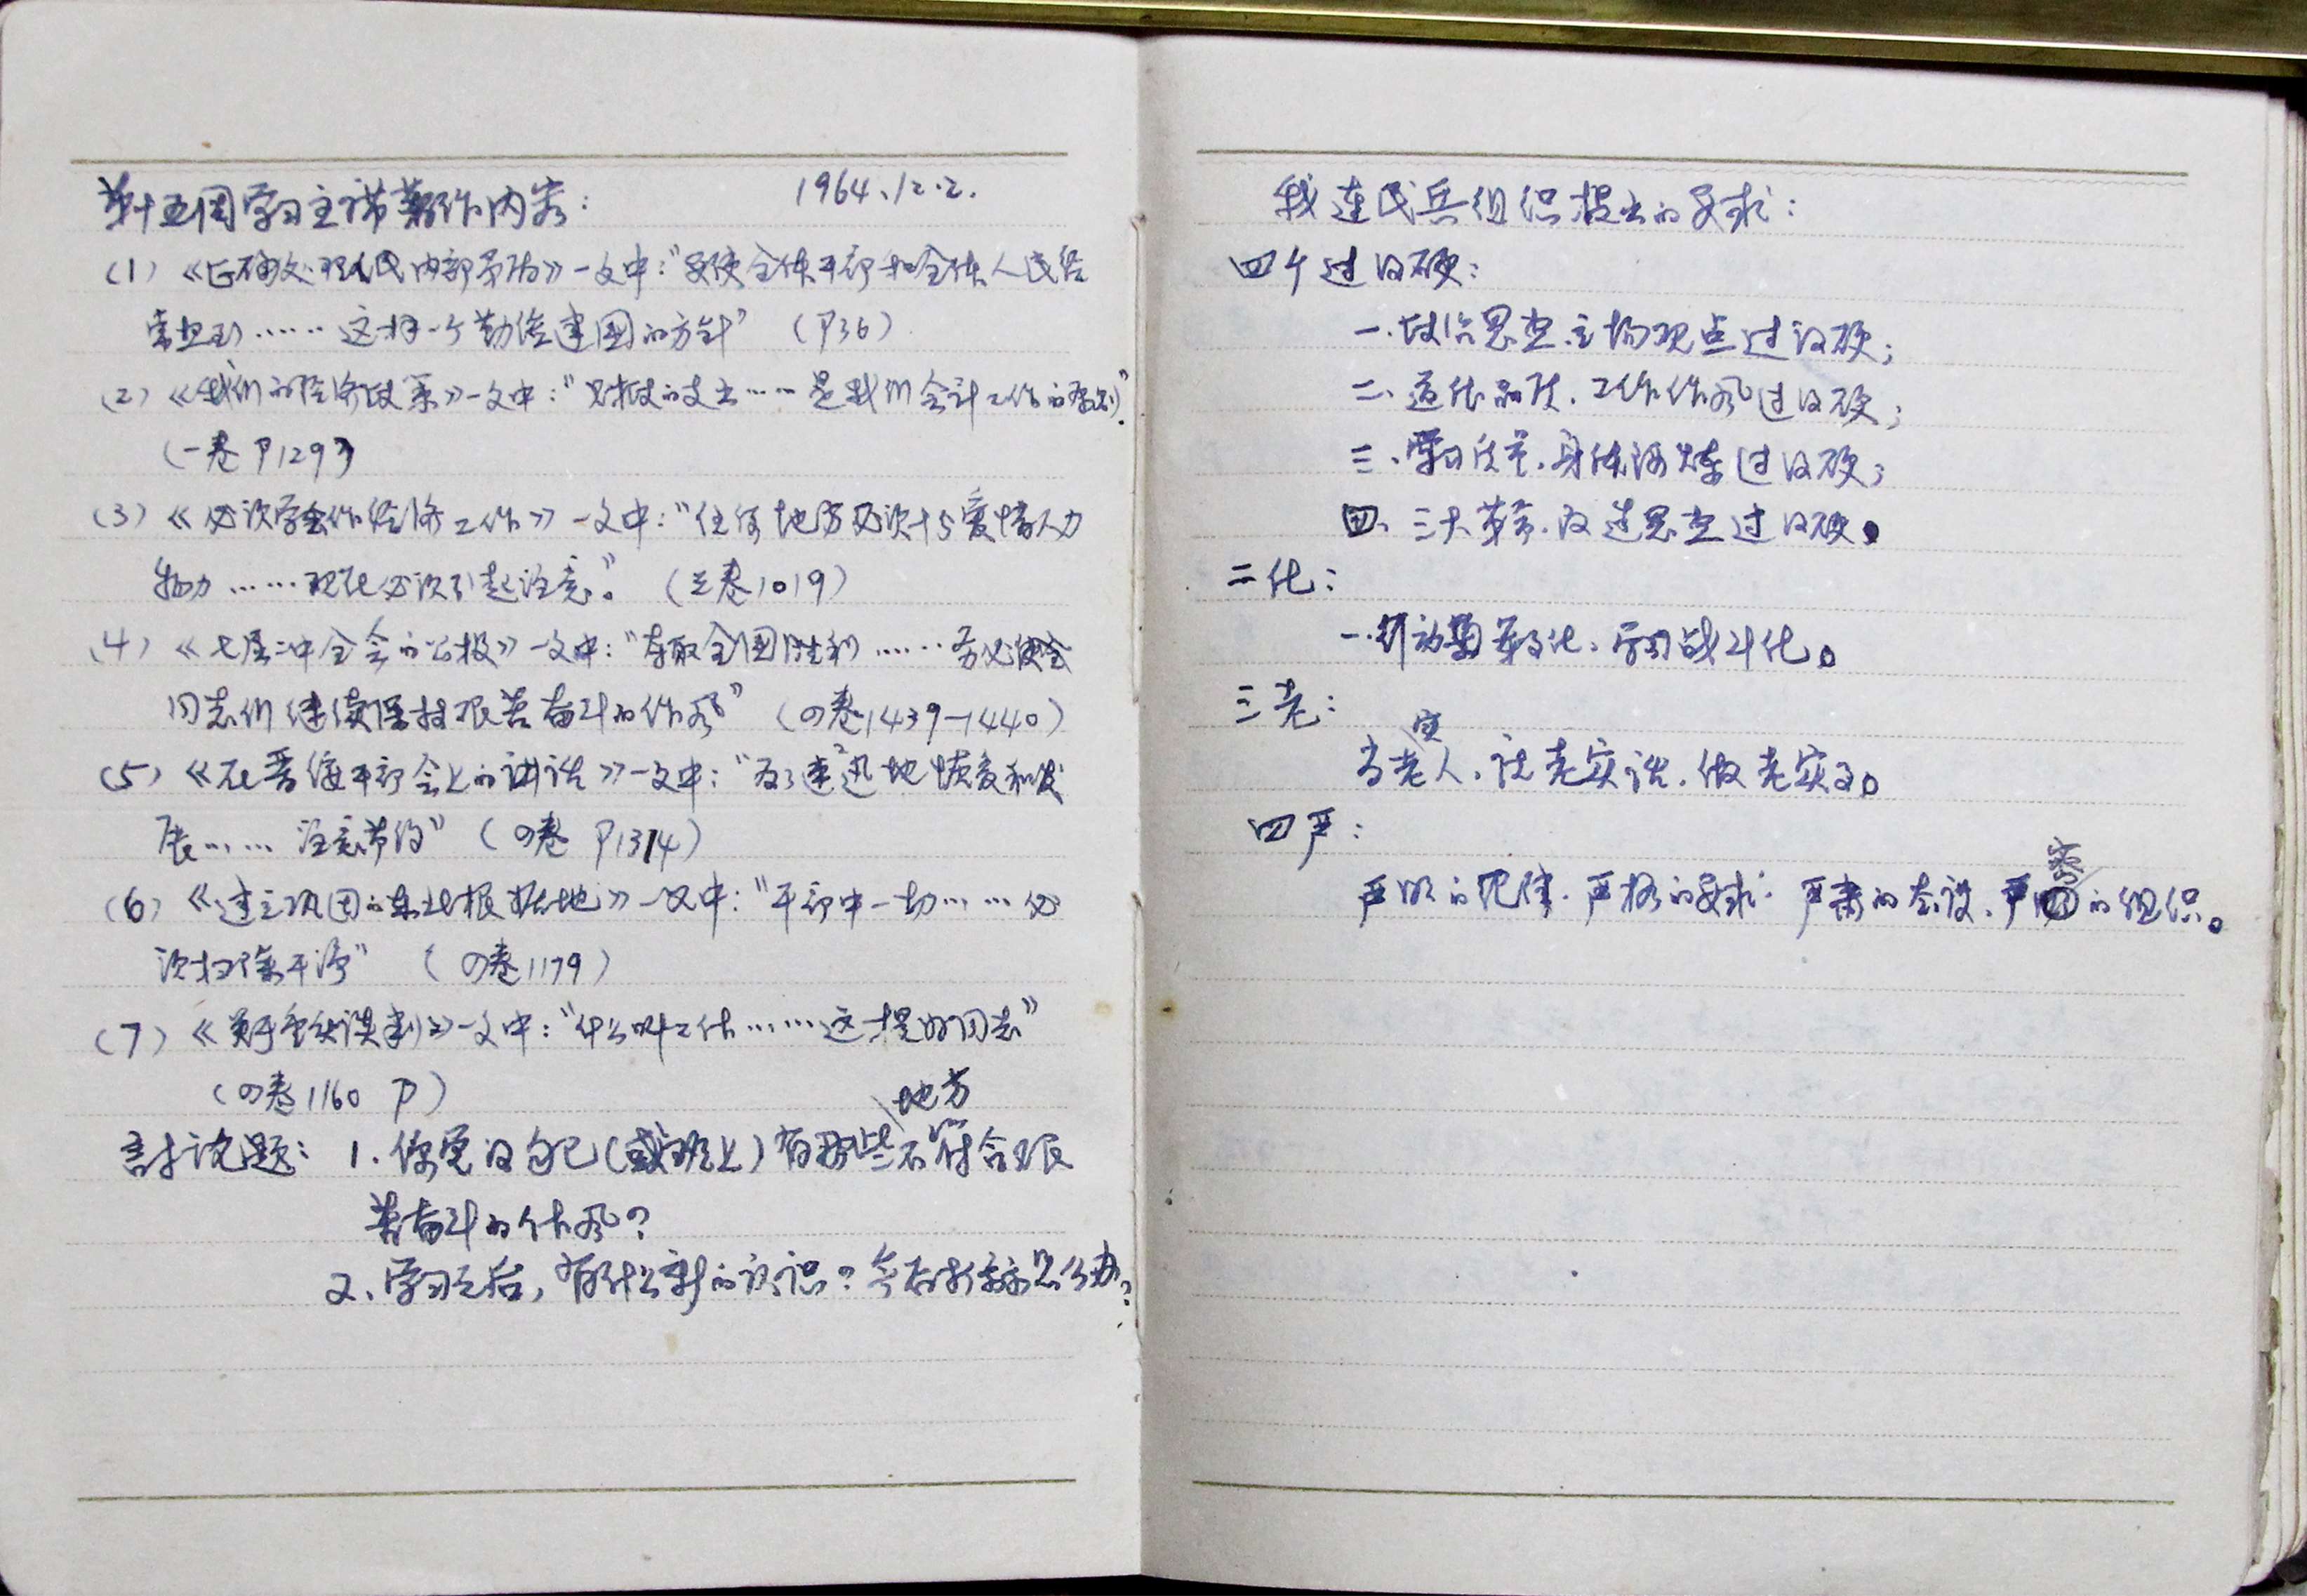 第十五周学习主席著作内容： 1964.12.2.
(1)《正确处理人民内部矛盾》一文中："要使全体干部和全体人民经
常想到……这样一个勤俭建国的方针" (P36)
(2)《我们的经济政策》一文中："财政的支出……是我们会计工作的原则"
(一卷 P129)
(3)《必须学会作经济工作》一文中："任何地方必须十分爱惜人力
物力……现在必须引起注意。" (三卷1019)
(4)《七届二中全会的公报》一文中："夺取全国胜利……务必使
同志们继续保持艰苦奋斗的作风" (四卷1439—1440)
(5)《在晋绥干部会上的讲话》一文中："为了迅速地恢复和发
展……注意节约" (四卷 P1314)
(6)《建立巩固的东北根据地》一文中："干部中一切……必
须扫除干净" (四卷1179)
(7)《关于重庆谈判》一文中："什么叫工作……这才是好同志"
(四卷1160 P)
地方
討论题：1.你觉得自己(或班上)有哪些不符合艰
苦奋斗的作风？
2、学习之后，有什么新的认识？今后打算怎么办？
我连民兵组织提出的要求：
四个过得硬：
一.政治思想.立场观点过得硬；
二、道德品质.工作作风过得硬；
三.学习质量.身体锻炼过得硬；
四、三大革命.改造思想过得硬。
二化：
一.行动军事化、学习战斗化。
三老：
实
当老人.说老实话.做老实事。
四严：
密
严明的纪律.严格的要求.严肃的态度.严的组织。